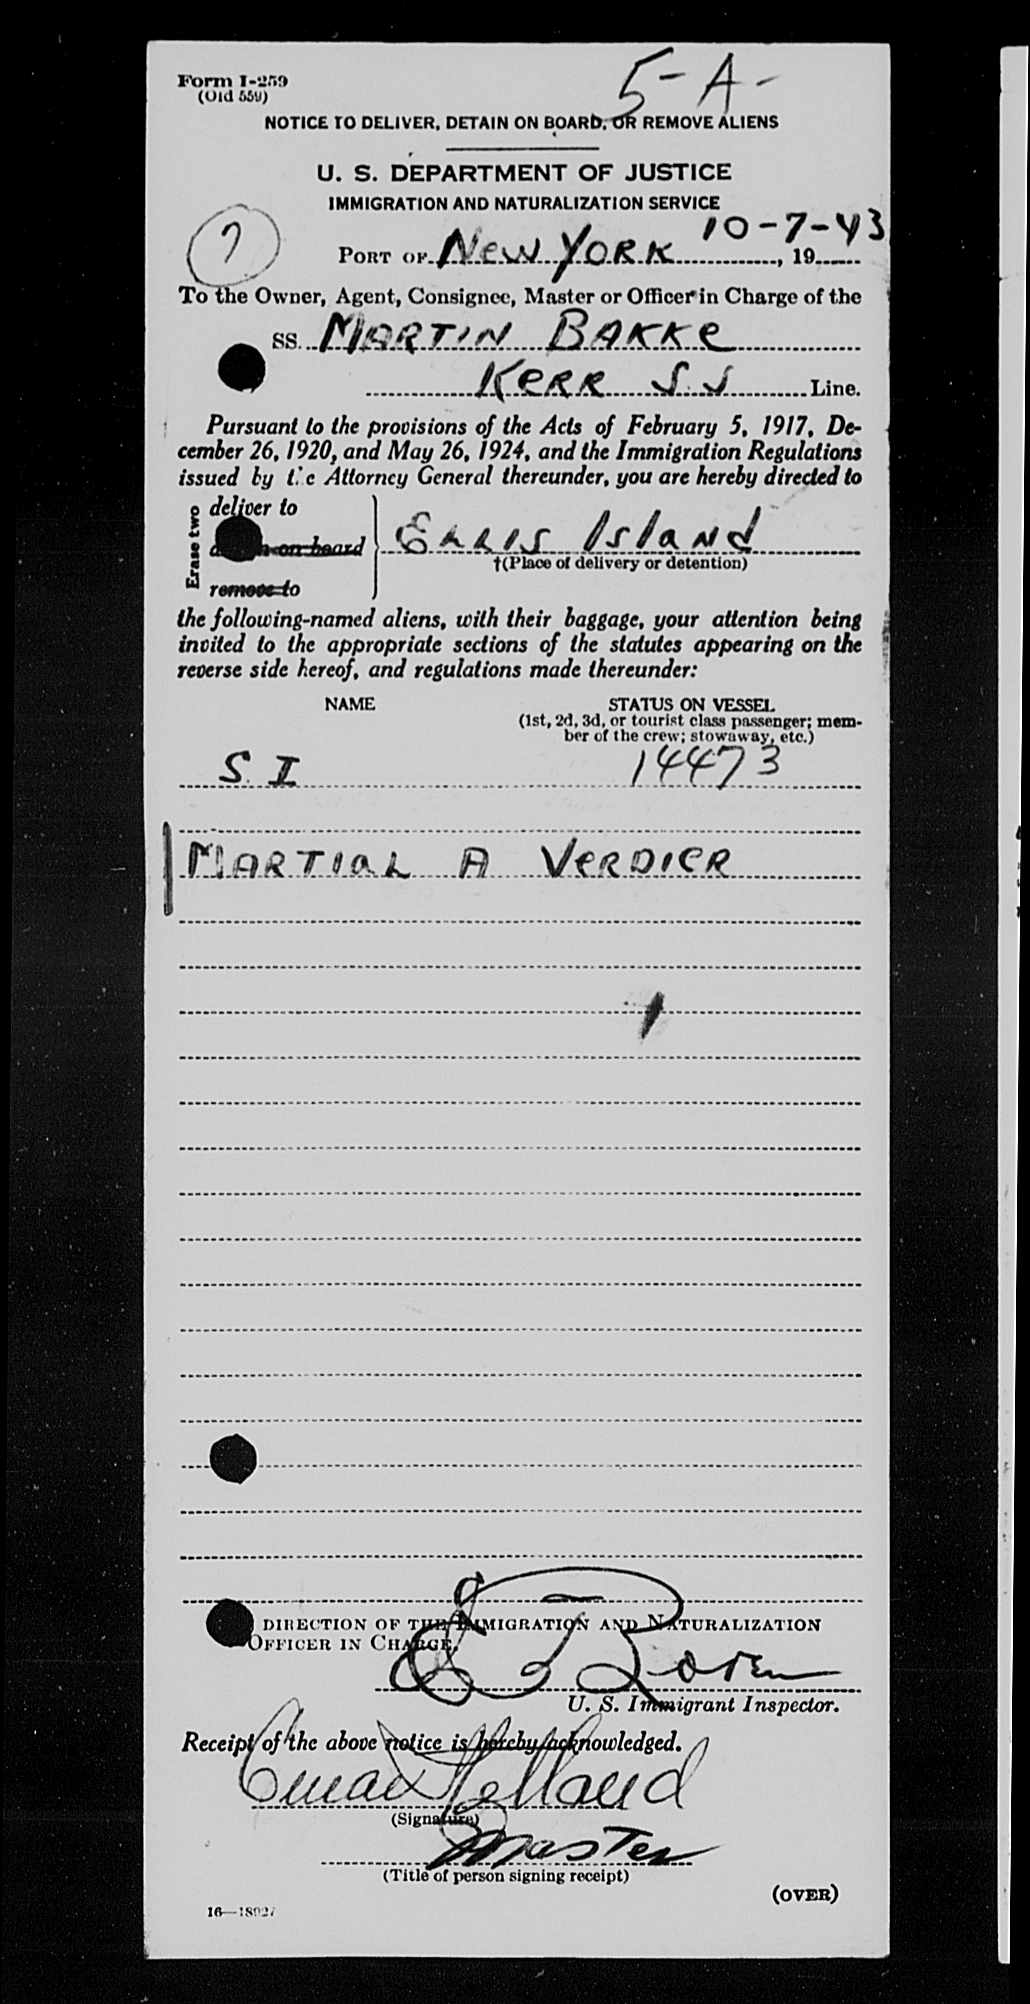 Form I-259
(Old 559)
5-A-
NOTICE TO DELIVER, DETAIN ON BOARD, OR REMOVE ALIENS
U. S. DEPARTMENT OF JUSTICE
IMMIGRATION AND NATURALIZATION SERVICE
10-7-43
PORT OF NEW YORK, 19
To the Owner, Agent, Consignee, Master or Officer in Charge of the
SS. MARTIN BAKKE
KERR S.S Line.
Pursuant to the provisions of the Acts of February 5, 1917, De-
cember 26, 1920, and May 26, 1924, and the Immigration Regulations
issued by the Attorney General thereunder, you are hereby directed to
Erase two
deliver to
on board
ELLIS IslaNd
†(Place of delivery or detention)
remove to
the following-named aliens, with their baggage, your attention being
invited to the appropriate sections of the statutes appearing on the
reverse side hereof, and regulations made thereunder:
NAME STATUS ON VESSEL
(1st, 2d, 3d, or tourist class passenger; mem-
ber of the crew; stowaway, etc.)
S. I 14473
MARTIAL A VERDIER
DIRECTION OF THE IMMIGRATION AND NATURALIZATION
OFFICER IN CHARGE.
U. S. Immigrant Inspector.
Receipt of the above notice is hereby acknowledged.
(Signature)
Master
(Title of person signing receipt)
(OVER)
16—18927